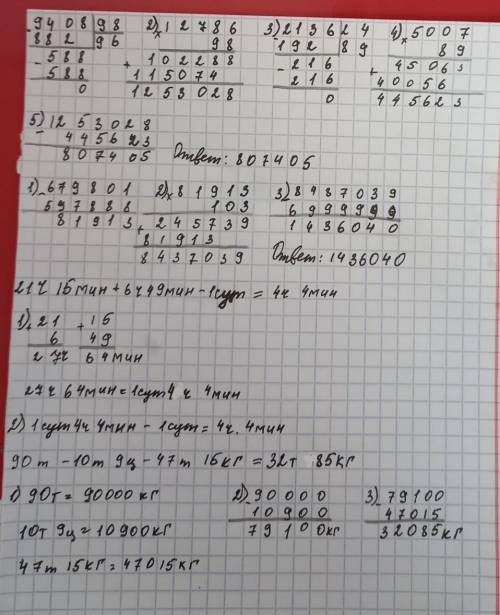 - 9408|98 2) x 12786 3) - 2136|24 4) x 5007
882|96 98 192|89 89
- 588 + 102288 - 216 + 45063
588 115074 216 40056
0 1253028 0 445623
5) - 1253028
445623
807405 Ответ: 807405
1) - 679801 2) x 81913 3) - 8437039
597888 103 6999999
81913 + 245739 1436040
81913
8437039 Ответ: 1436040
21ч 15мин + 6ч 49мин - 1сут = 4ч 4мин
1) + 21 + 15
6 49
27ч 64мин
27ч 64мин = 1сут 4ч 4мин
2) 1сут 4ч 4мин - 1сут = 4ч. 4мин
90т - 10т 9ц - 47т 15кг = 32т 85кг
1) 90т = 90000 кг 2) - 90000 3) - 79100
10т 9ц = 10900кг 10900 47015
79100кг 32085кг
47т 15кг = 47015кг